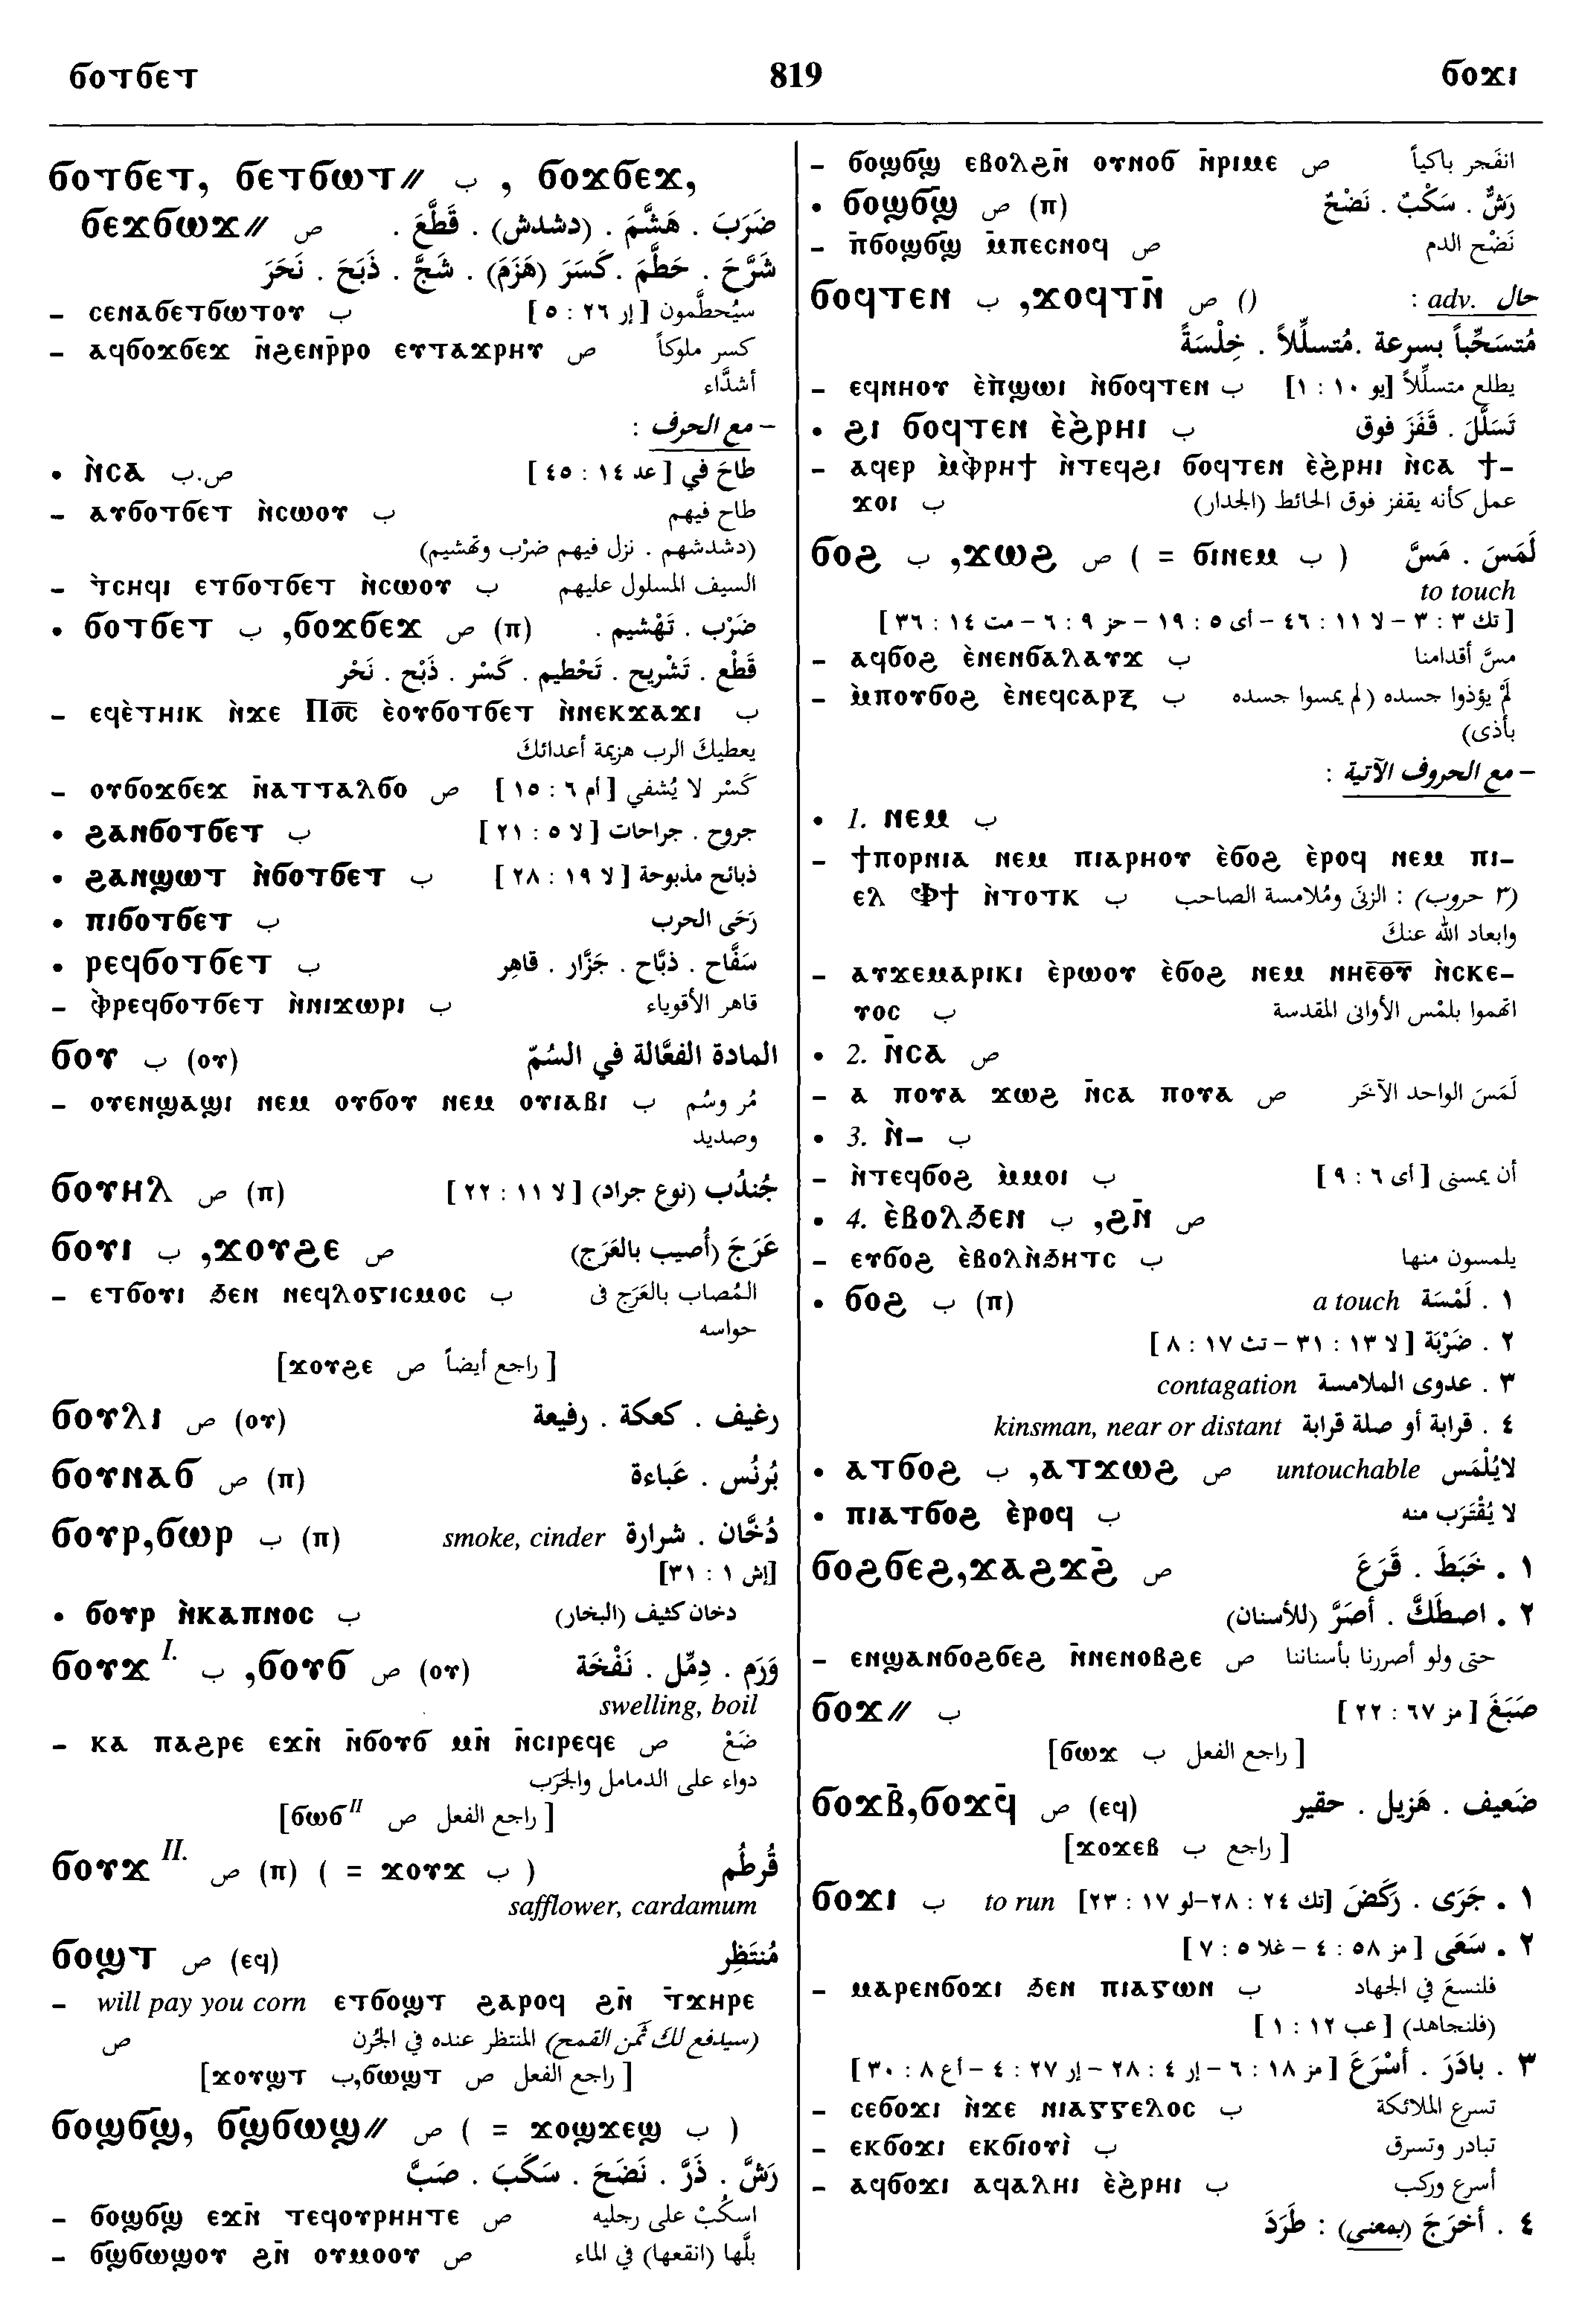 ϭⲟⲧϭⲉⲧ 819 ϭⲟϫⲓ
ϭⲟⲧϭⲉⲧ, ϭⲉⲧϭⲱⲧ// ب , ϭⲟϫϭⲉϫ,
ϭⲉϫϭⲱϫ// ص ضَرَبَ . هَشَّمَ . (دشدش) . قَطَّعَ .
شَرَّحَ . حَطَّمَ .كَسَرَ (هَزَمَ) . شَجَّ . ذَبَحَ . نَحَرَ
– ⲥⲉⲛⲁϭⲉⲧϭⲱⲧⲟⲩ ب سيُحطَّمون [ إر ٢٦ : ٥ ]
– ⲁϥϭⲟϫϭⲉϫ ⲛ̄ϩⲉⲛⲣ̄ⲣⲟ ⲉⲩⲧⲁϫⲣⲏⲩ ص كسر ملوكاً
أشدَّاء
– مع الحرف :
• ⲛ̀ⲥⲁ ص.ب طاحَ في [ عد ١٤ : ٤٥ ]
– ⲁⲩϭⲟⲧϭⲉⲧ ⲛ̀ⲥⲱⲟⲩ ب طاح فيهم
(دشدشهم . نزل فيهم ضرْب وتهشيم)
– ϯⲥⲏϥⲓ ⲉⲧϭⲟⲧϭⲉⲧ ⲛ̀ⲥⲱⲟⲩ ب السيف المسلول عليهم
• ϭⲟⲧϭⲉⲧ ب ,ϭⲟϫϭⲉϫ ص (ⲡ) ضرْب . تَهْشيم .
قَطْع . تَشْريح . تَحْطيم . كَسْر . ذَبْح . نَحْر
– ⲉϥⲉ̀ⲧⲏⲓⲕ ⲛ̀ϫⲉ Ⲡⲟ̅ⲥ̅ ⲉ̀ⲟⲩϭⲟⲧϭⲉⲧ ⲛ̀ⲛⲉⲕϫⲁϫⲓ ب
يعطيكَ الرب هزيمة أعدائكَ
– ⲟⲩϭⲟϫϭⲉϫ ⲛ̄ⲁⲧⲧⲁⲗϭⲟ ص كَسْر لا يُشفي [ أم ٦ : ١٥ ]
• ϩⲁⲛϭⲟⲧϭⲉⲧ ب جروح . جراحات [ لا ٥ : ٢١ ]
• ϩⲁⲛϣⲱⲧ ⲛ̀ϭⲟⲧϭⲉⲧ ب ذبائح مذبوحة [ لا ١٩ : ٢٨ ]
• ⲡⲓϭⲟⲧϭⲉⲧ ب رَحَى الحرب
• ⲣⲉϥϭⲟⲧϭⲉⲧ ب سَفَّاح . ذبَّاح . جَزَّار . قاهِر
– ⲫ̀ⲣⲉϥϭⲟⲧϭⲉⲧ ⲛ̀ⲛⲓϫⲱⲣⲓ ب قاهر الأقوياء
ϭⲟⲩ ب (ⲟⲩ) المادة الفعَّالة في السُمّ
– ⲟⲩⲉⲛϣⲁϣⲓ ⲛⲉⲙ ⲟⲩϭⲟⲩ ⲛⲉⲙ ⲟⲩⲓⲁⲃⲓ ب مُر وسُم
وصديد
ϭⲟⲩⲏⲗ ص (ⲡ) جُندُب (نوع جراد) [ لا ١١ : ٢٢ ]
ϭⲟⲩⲓ ب ,ϫⲟⲩϩⲉ ص عَرَجَ (أُصيب بالعَرَج)
– ⲉⲧϭⲟⲩⲓ ϧⲉⲛ ⲛⲉϥⲗⲟⲅⲓⲥⲙⲟⲥ ب المُصاب بالعَرَج فى
حواسه
[ راجع أيضاً ص ϫⲟⲩϩⲉ]
ϭⲟⲩⲗⲓ ص (ⲟⲩ) رغيف . كعكة . رفيعة
ϭⲟⲩⲛⲁϭ ص (ⲡ) بُرنُس . عَباءة
ϭⲟⲩⲣ,ϭⲱⲣ ب (ⲡ) smoke, cinder دُخَّان . شرارة
[إش ١ : ٣١]
• ϭⲟⲩⲣ ⲛ̀ⲕⲁⲡⲛⲟⲥ ب دخان كثيف (البخار)
ϭⲟⲩϫ I. ب ,ϭⲟⲩϭ ص (ⲟⲩ) وَرَم . دِمِّل . نَفْخَة
swelling, boil
– ⲕⲁ ⲡⲁϩⲣⲉ ⲉϫⲛ̄ ⲛ̄ϭⲟⲩϭ ⲙⲛ̄ ⲛ̄ⲥⲓⲣⲉϥⲉ ص ضَعْ
دواء على الدمامل والجَرَب
[ راجع الفعل ص ϭⲱϭ II]
ϭⲟⲩϫ II. ص (ⲡ) ( = ϫⲟⲩϫ ب ) قُرطُم
safflower, cardamum
ϭⲟϣⲧ ص (ⲉϥ) مُنتَظِر
– will pay you corn ⲉⲧϭⲟϣⲧ ϩⲁⲣⲟϥ ϩⲛ̄ ⲧ̄ϫⲏⲣⲉ
(سيدفع لكَ ثَمن القمح) المنتظر عنده في الجُرن ص
[ راجع الفعل ص ϭⲱϣⲧ,ب ϫⲟⲩϣⲧ]
ϭⲟϣϭϣ̄, ϭϣ̄ϭⲱϣ// ص ( = ϫⲟϣϫⲉϣ ب )
رَشَّ . ذَرَّ . نَضَحَ . سَكَبَ . صَبَّ
– ϭⲟϣϭϣ̄ ⲉϫⲛ̄ ⲧⲉϥⲟⲩⲣⲏⲏⲧⲉ ص اسكُبْ على رجليه
– ϭϣ̄ϭⲱϣⲟⲩ ϩⲛ̄ ⲟⲩⲙⲟⲟⲩ ص بلَّها (انقعها) في الماء
– ϭⲟϣϭϣ̄ ⲉⲃⲟⲗϩⲛ̄ ⲟⲩⲛⲟϭ ⲛ̄ⲣⲓⲙⲉ ص انفَجر باكياً
• ϭⲟϣϭϣ̄ ص (ⲡ) رَشٌّ . سَكْبٌ . نَضْحٌ
– ⲡ̄ϭⲟϣϭϣ̄ ⲙ̄ⲡⲉⲥⲛⲟϥ ص نَضْح الدم
ϭⲟϥⲧⲉⲛ ب ,ϫⲟϥⲧⲛ̄ ص () حال adv. :
مُتسَحِّباً بسرعة .مُتسلِّلاً . خِلْسَةً
– ⲉϥⲛⲏⲟⲩ ⲉ̀ⲡ̀ϣⲱⲓ ⲛ̀ϭⲟϥⲧⲉⲛ ب يطلع متسلِّلاً [يو ١٠ : ١]
• ϩⲓ ϭⲟϥⲧⲉⲛ ⲉ̀ϩ̀ⲣⲏⲓ ب تَسَلَّلَ . قَفَزَ فوق
– ⲁϥⲉⲣ ⲙ̀ⲫⲣⲏϯ ⲛ̀ⲧⲉϥϩⲓ ϭⲟϥⲧⲉⲛ ⲉ̀ϩ̀ⲣⲏⲓ ⲛ̀ⲥⲁ ϯ–
ϫⲟⲓ ب عمل كأنه يقفز فوق الحائط (الجدار)
ϭⲟϩ ب ,ϫⲱϩ ص ( = ϭⲓⲛⲉⲙ ب ) لَمَسَ . مَسَّ
to touch
[ تك ٣ : ٣ – لا ١١ : ٤٦ – أى ٥ : ١٩ – حز ٩ : ٦ – مت ١٤ : ٣٦ ]
– ⲁϥϭⲟϩ ⲉ̀ⲛⲉⲛϭⲁⲗⲁⲩϫ ب مسَّ أقدامنا
– ⲙ̀ⲡⲟⲩϭⲟϩ ⲉ̀ⲛⲉϥⲥⲁⲣⲝ ب لَمْ يؤذوا جسده (لم يمسوا جسده
بأذى)
– مع الحروف الآتية :
• 1. ⲛⲉⲙ ب
– ϯⲡⲟⲣⲛⲓⲁ ⲛⲉⲙ ⲡⲓⲁⲣⲏⲟⲩ ⲉ̀ϭⲟϩ ⲉ̀ⲣⲟϥ ⲛⲉⲙ ⲡⲓ–
ⲉⲗ Ⲫϯ ⲛ̀ⲧⲟⲧⲕ ب (٣ حروب) : الزنَى ومُلامسة الصاحب
وابعاد الله عنكَ
– ⲁⲩϫⲉⲙⲁⲣⲓⲕⲓ ⲉ̀ⲣⲱⲟⲩ ⲉ̀ϭⲟϩ ⲛⲉⲙ ⲛⲏⲉ̅ⲑ̅ⲩ̅ ⲛ̀ⲥⲕⲉ–
ⲩⲟⲥ ب اتهموا بلمْس الأوانى المقدسة
• 2. ⲛ̄ⲥⲁ ص
– ⲁ ⲡⲟⲩⲁ ϫⲱϩ ⲛ̄ⲥⲁ ⲡⲟⲩⲁ ص لَمَسَ الواحد الآخَر
• 3. ⲛ̀– ب
– ⲛ̀ⲧⲉϥϭⲟϩ ⲙ̀ⲙⲟⲓ ب أن يمسنى [ أى ٦ : ٩ ]
• 4. ⲉ̀ⲃⲟⲗϧⲉⲛ ب ,ϩⲛ̄ ص
– ⲉⲩϭⲟϩ ⲉ̀ⲃⲟⲗⲛ̀ϧⲏⲧⲥ ب يلمسون منها
• ϭⲟϩ ب (ⲡ) ١ . لَمْسَة a touch
٢ . ضَرْبَة [ لا ١٣ : ٣١ – تث ١٧ : ٨ ]
٣ . عدوى الملامسة contagation
٤ . قرابة أو صلة قرابة kinsman, near or distant
• ⲁⲧϭⲟϩ ب ,ⲁⲧϫⲱϩ ص untouchable لايُلْمَس
• ⲡⲓⲁⲧϭⲟϩ ⲉ̀ⲣⲟϥ ب لا يُقْتَرَب منه
ϭⲟϩϭⲉϩ,ϫⲁϩϫϩ̄ ص ١ . خَبَطَ . قَرَعَ
٢ . اصطَكَّ . أصَرَّ (للأسنان)
– ⲉⲛϣⲁⲛϭⲟϩϭⲉϩ ⲛ̄ⲛⲉⲛⲟⲃϩⲉ ص حتى ولو أصررنا بأسناننا
ϭⲟϫ// ب صَبَغَ [ مز ٦٧ : ٢٢ ]
[ راجع الفعل ب ϭⲱϫ]
ϭⲟϫⲃ̄,ϭⲟϫϥ̄ ص (ⲉϥ) ضَعيف . هَزيل . حقير
[ راجع ب ϫⲟϫⲉⲃ]
ϭⲟϫⲓ ب to run ١ . جَرَى . رَكَضَ [تك ٢٤ : ٢٨–لو ١٧ : ٢٣]
٢ . سَعَى [ مز ٥٨ : ٤ – غلا ٥ : ٧ ]
– ⲙⲁⲣⲉⲛϭⲟϫⲓ ϧⲉⲛ ⲡⲓⲁⲅⲱⲛ ب فلنسعَ في الجهاد
(فلنجاهد) [ عب ١٢ : ١ ]
٣ . بادَرَ . أسْرَعَ [ مز ١٨ : ٦ – إر ٤ : ٢٨ – إر ٢٧ : ٤ – أع ٨ : ٣٠ ]
– ⲥⲉϭⲟϫⲓ ⲛ̀ϫⲉ ⲛⲓⲁⲅⲅⲉⲗⲟⲥ ب تسرع الملائكة
– ⲉⲕϭⲟϫⲓ ⲉⲕϭⲓⲟⲩⲓ̀ ب تبادر وتسرق
– ⲁϥϭⲟϫⲓ ⲁϥⲁⲗⲏⲓ ⲉ̀ϩ̀ⲣⲏⲓ ب أسرع وركب
٤ . أخرَجَ (بمعنى) : طَرَدَ